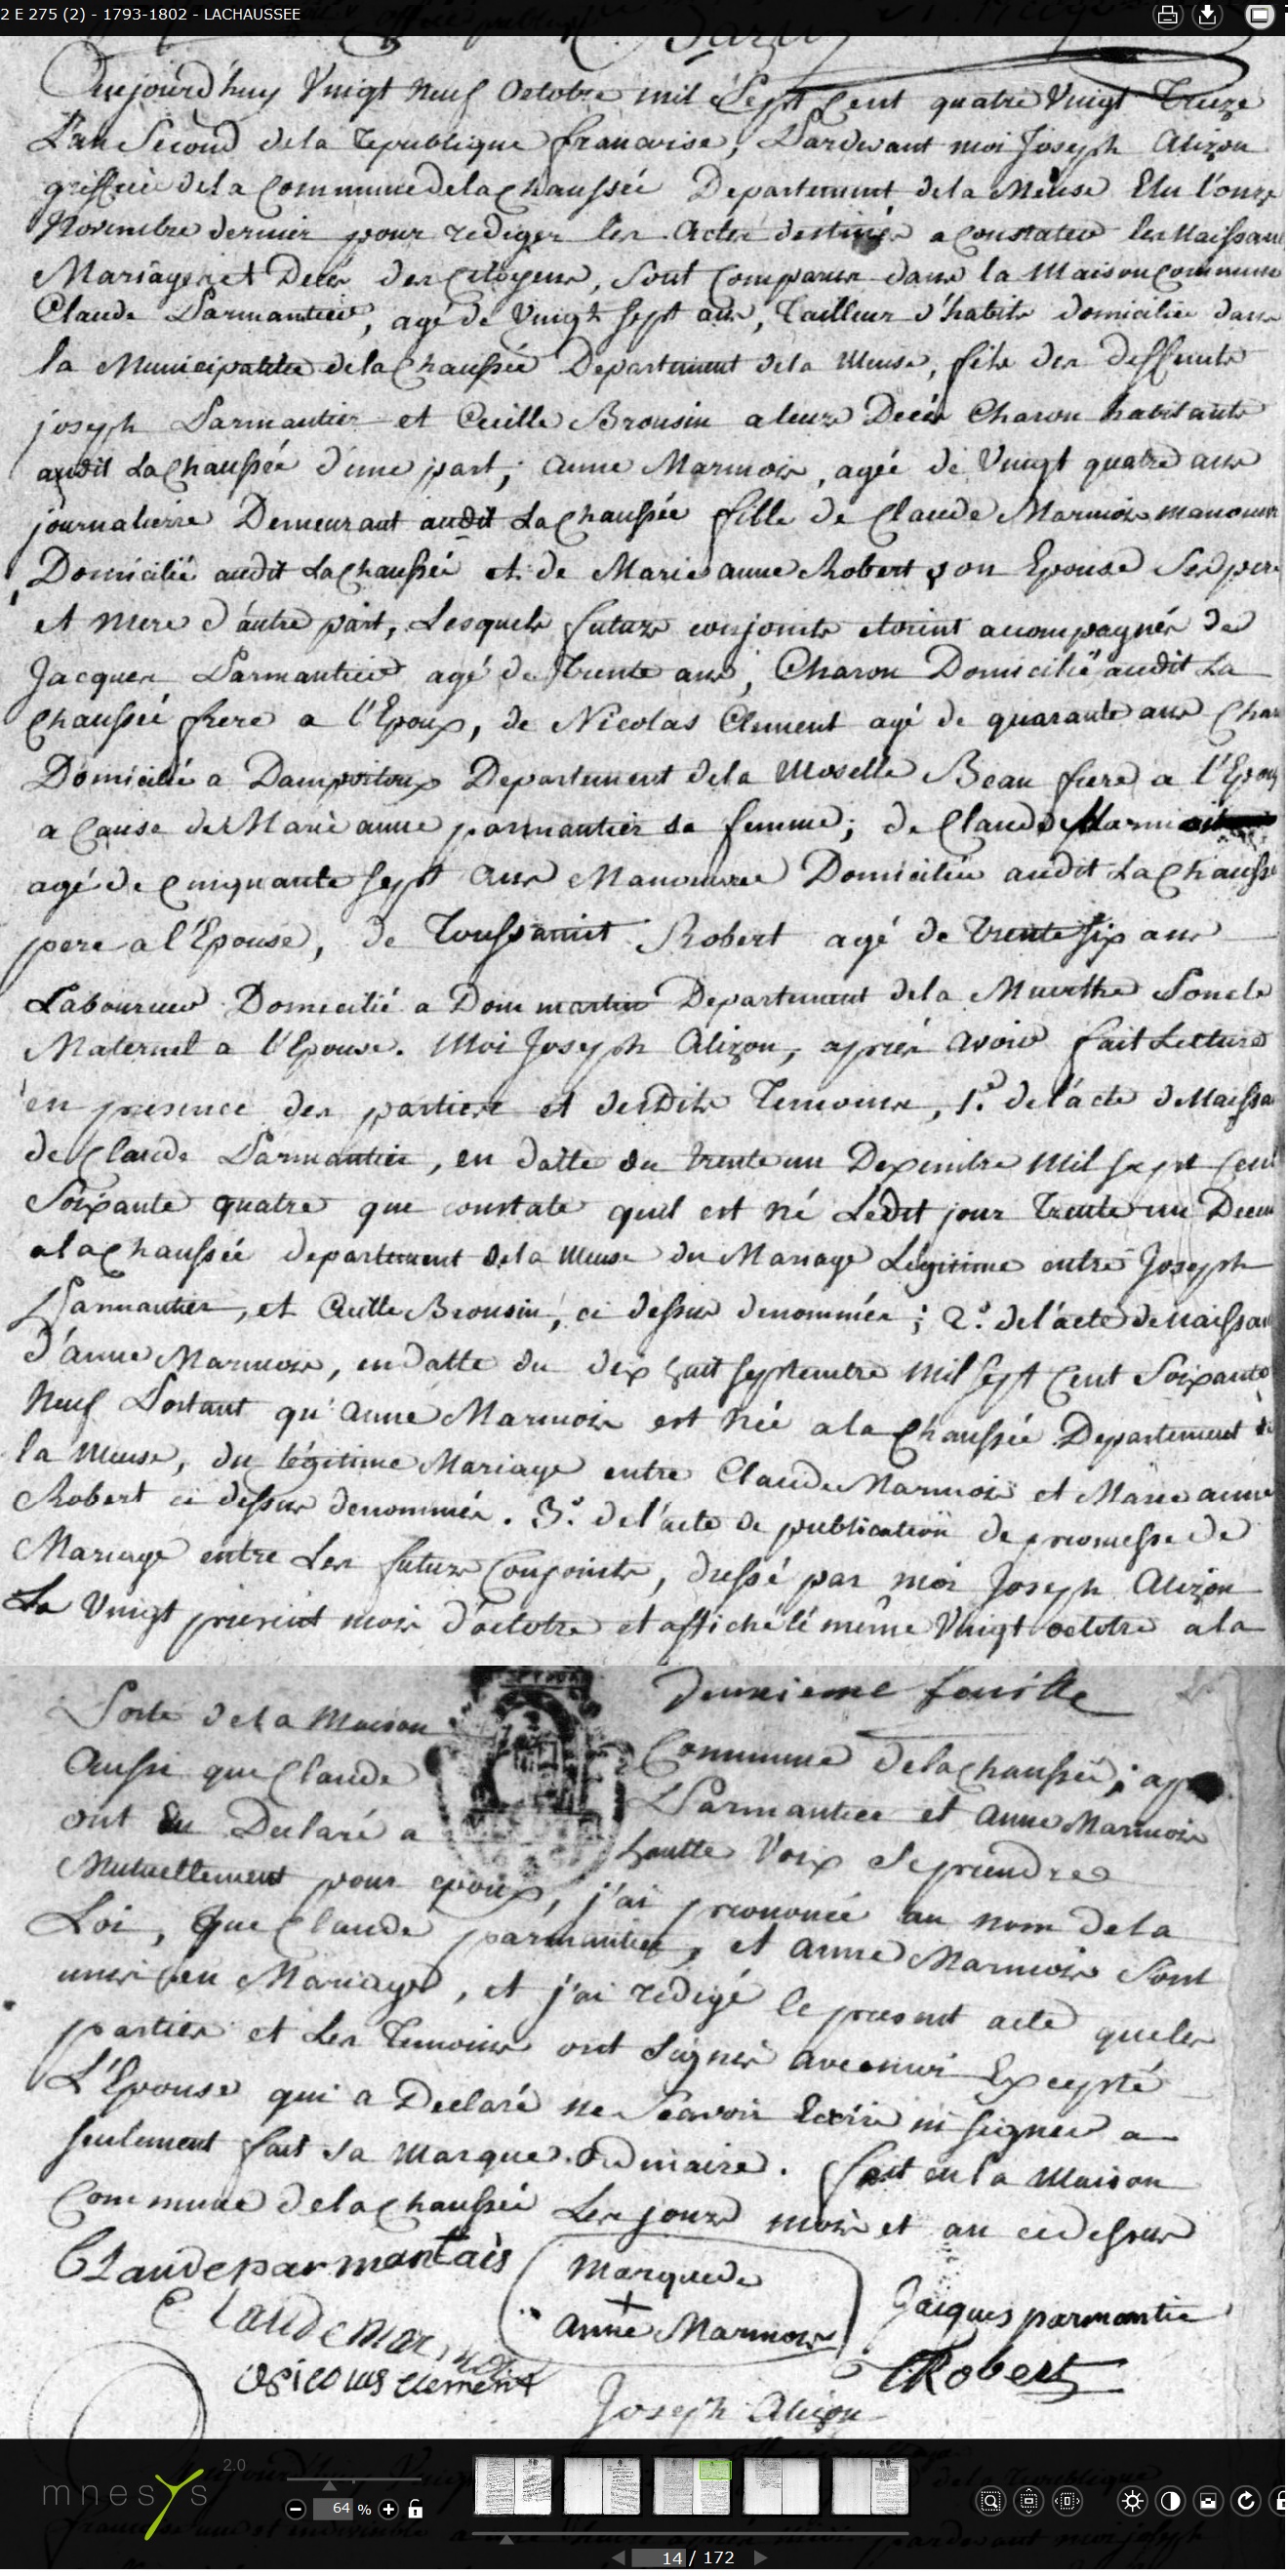 2 E 275 (2) - 1793-1802 - LACHAUSSEE
Aujourd'huy Vingt Neuf Octobre mil Sept Cent quatre Vingt Treize
L'an Second de la republique francoise, Pardevant moi Joseph Alizon
greffier de la Commune de la Chaussée Departement de la Meuse Elu l'onze
Novembre dernier pour rediger les Actes destinés a Constater les Naissan
Mariages et Decés des Citoyens, sont Comparus dans la Maison Commune
Claude Parmantier, agé de Vingt Sept ans, Tailleur d'habits domicilié dans
la Municipalitée de la Chaussée Departement de la Meuse, fils des deffunts
joseph Parmantier et Cecille Brousin a leurs Decés Charon habitants
audit La Chaussée d'une part ; anne Marmois, agée de Vingt quatre ans
journaliere Demeurant audit La Chaussée fille de Claude Marmois manouvr
Domicilié audit La Chaussée et de Marie anne Robert son Epouse Ses pere
et mere d'autre part, Lesquels futurs conjoints etoient acompagnés de
Jacques Parmantier agé de Trente ans, Charon Domicilié audit La
Chaussée frere a l'Epoux, de Nicolas Clement agé de quarante ans Char
Domicilié a Dampvitoux Departement de la Moselle Beau frere a l'Epoux
a Cause de Marie anne parmantier sa femme ; de Claude Marmois
agé de Cinquante Sept ans Manouvre Domicilié audit La Chaussé
pere a l'Epouse, de Toussaint Robert agé de Trente Six ans
Laboureur Domicilié a Dommartin Departement de la Meurthe L'oncle
Maternel a l'Epouse. Moi Joseph Alizon, aprés avoir fait Lecture
en presence des parties et desdits Temoins, 1.° de l'acte de Naissa
de Claude Parmantier, en datte du trente un Dexembre Mil sept Cent
Soixante quatre que constate quil est né Ledit jour Trente un Decem
a la Chaussée departement de la Meuse du Mariage Légitime entre Joseph
Parmantier, et Cecille Brousin, ci dessus denommés ; 2.° de l'acte de Naissan
d'anne Marmois, en datte du dix huit septembre Mil Sept Cent Soixante
Neuf Portant qu'anne Marmois est née a la Chaussée Departement de
la Meuse, du légitime Mariage entre Claude Marmois et Marie anne
Robert ci dessus denommés. 3.° de l'acte de publication de promesse de
Mariage entre Les futurs Conjoints, dressé par moi Joseph Alizon
Le Vingt present mois d'octobre et affiché le même Vingt octobre a la
Deuxieme feuille
Porte de la Maison Commune de la Chaussée ; ap
Aussi que Claude Parmantier et Anne Marmois
ont Eu Declaré a hautte Voix Se prendre
Mutuellement pour epoux, j'ai prononcé au nom de la
Loi, que Claude parmantier, et Anne Marmois Sont
unis en Mariage, et j'ai redigé le present acte que les
parties et Les Temoins ont Signés avec moi Excepté
L'Epouse qui a Declaré ne Scavoir Ecrire ni Signer a
seulement fait sa Marque ordinaire. fait en la Maison
Commune de la Chaussée Les jours mois et an cedessus
Claude parmantais
Marque de
+
Anne Marmois
Jacques parmantie
Claude Marmois
Nicolas clement
T Robert
Joseph Alizon
mnesys 2.0
64 %
14 / 172